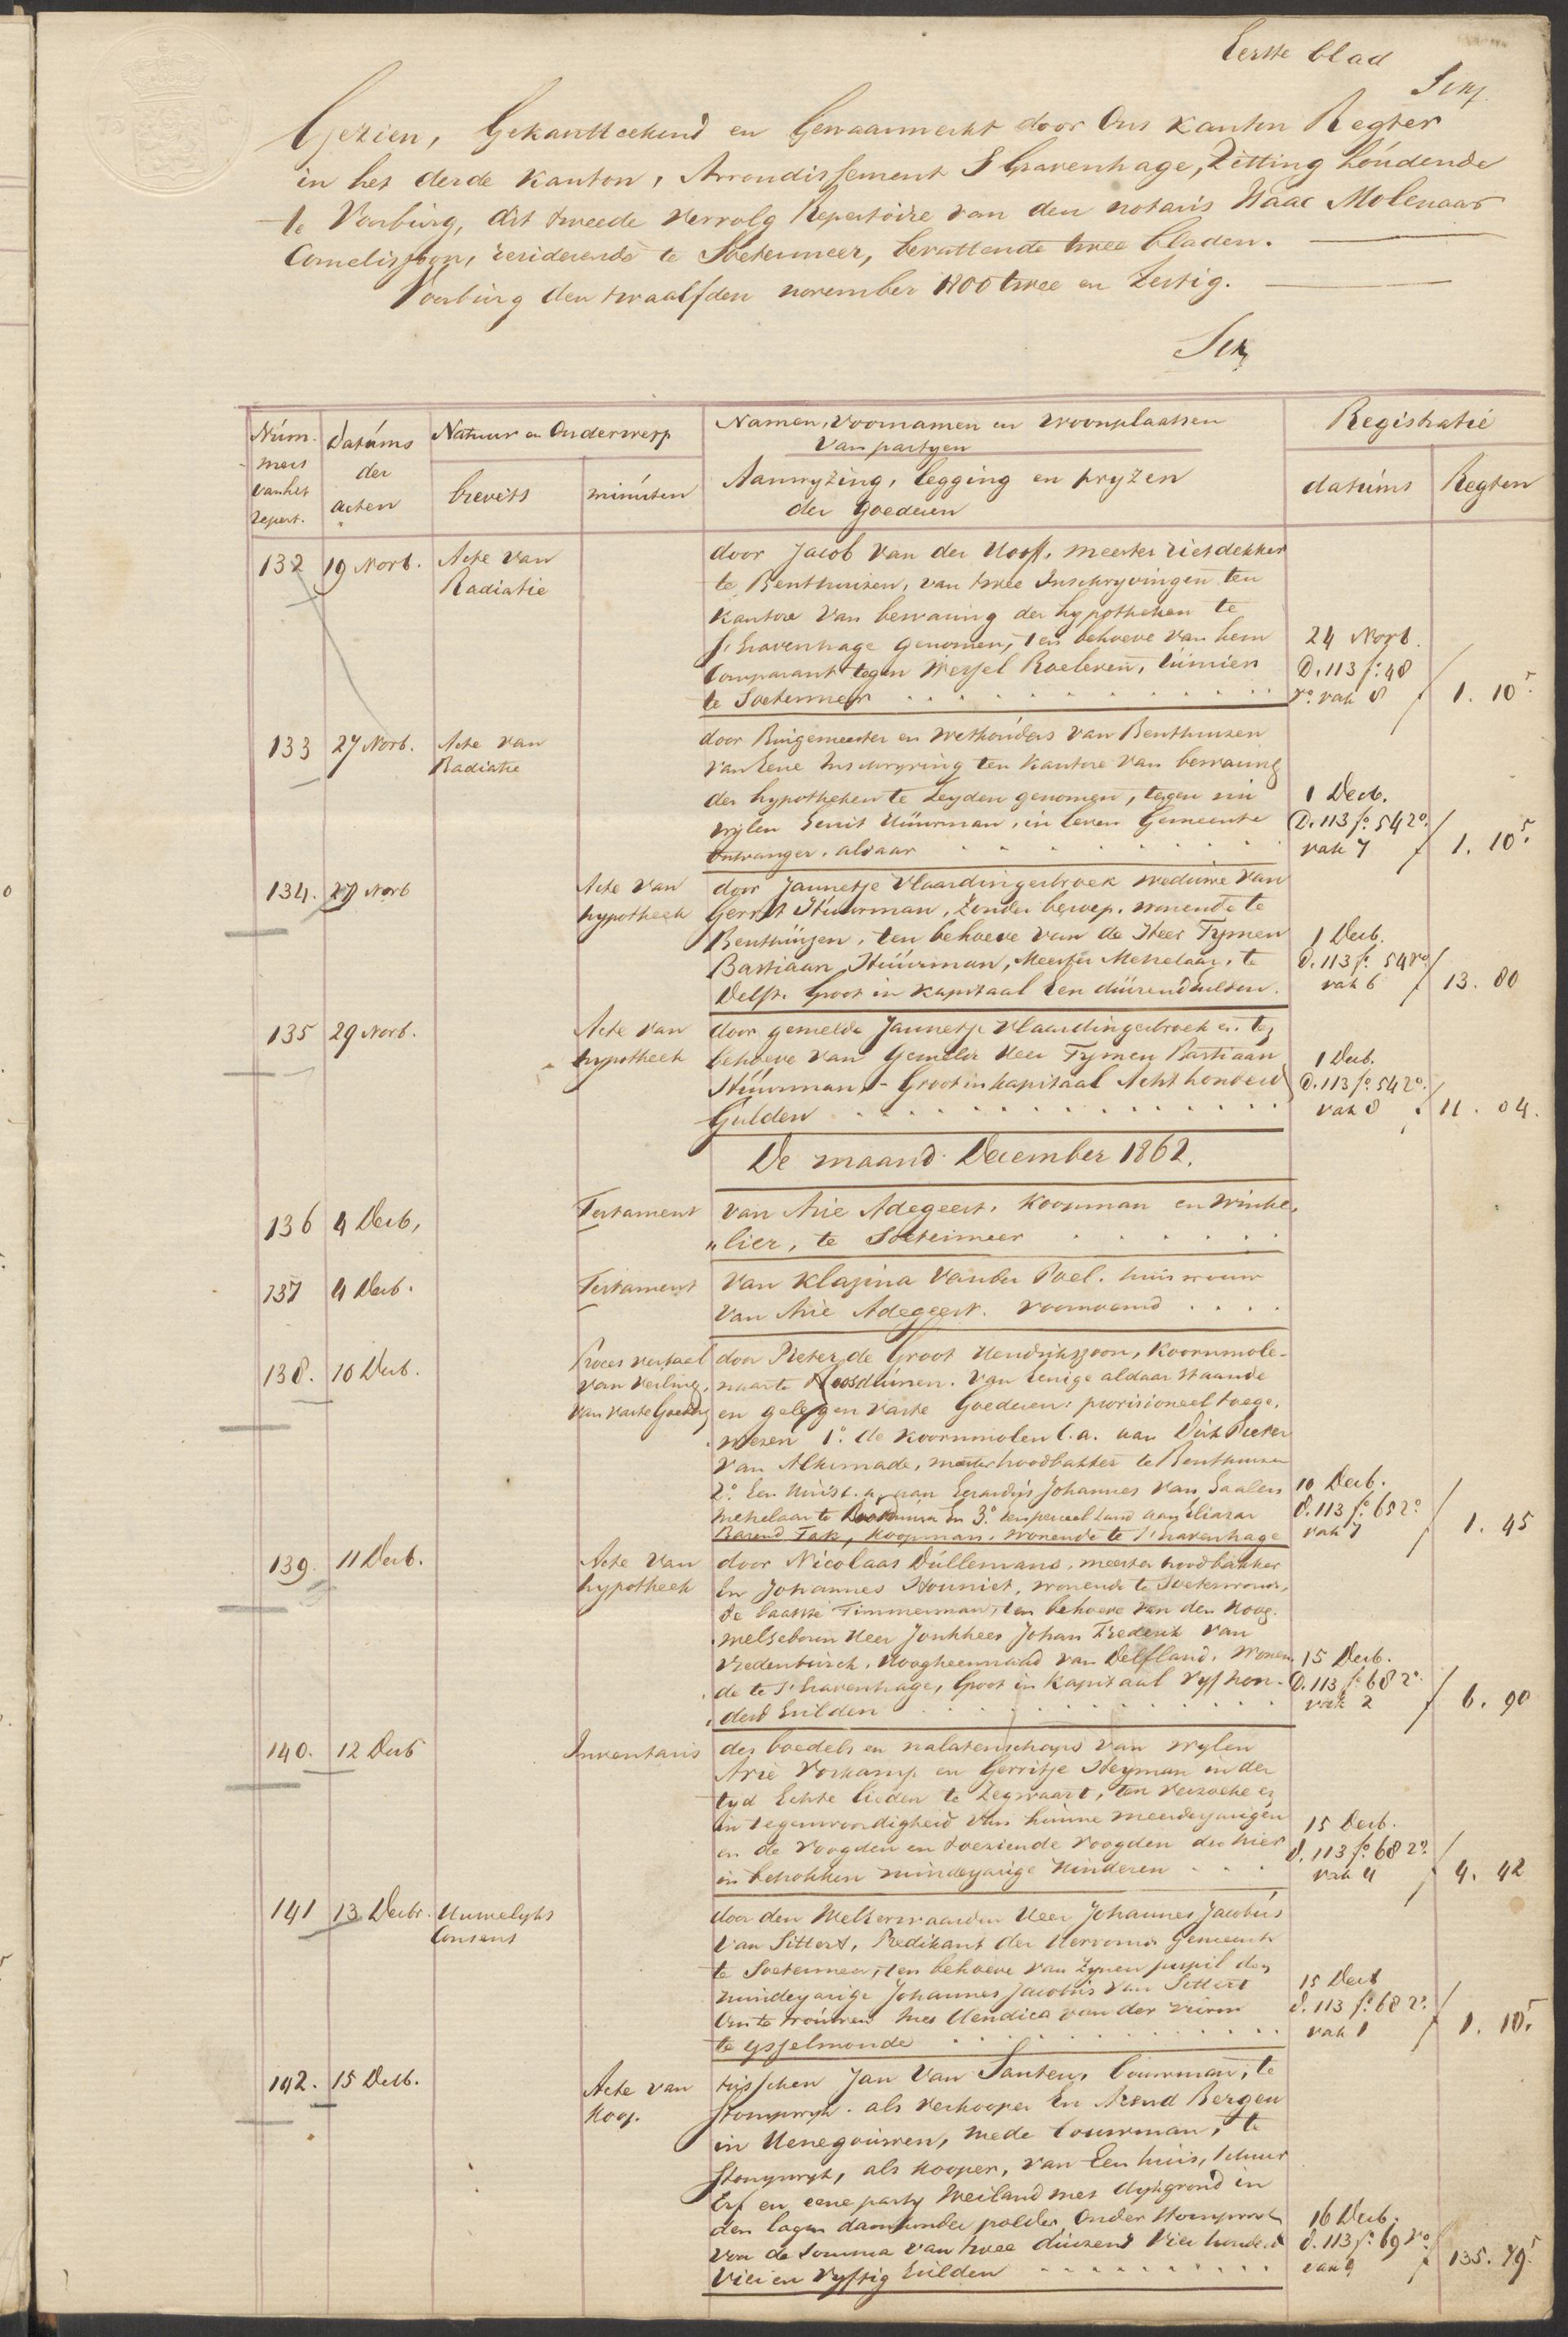 Eerste blad
Gezien, Gekanttekend en Gewaarmerkt door Ons Kanton Regter
in het derde Kanton, Arrondissement S Gravenhage, Zitting houdende
te Voorburg, dit tweede vervolg Repertoire van den notaris Isaac Molenaar
Corneliszoon, residerende te Soetermeer, bevattende twee bladen.
Voorburg den twaalfden november 1800 twee en Zestig.
Num- Datums Natuur en Onderwerp Namen, Voornamen en Woonplaatsen Registratie
mers der van partyen
van het acten brevets minuten Aanwyzing, legging en pryzen datums Regten
repert. der goederen
132 19 Novb. Acte van door Jacob van der Hooft, meester rietdekker
Radiatie te Benthuisen, van twee Inschryvingen ten
kantore van bewaring der hypotheken te
s'Gravenhage genomen, ten behoeve van hem 24 Novb.
Comparant tegen Wessel Roeleven, te D. 113 f. 48
te Soetermeer vo. vak 8 f 1. 10 5
133 27 Novb. Acte van door Burgemeester en Wethouders van Benthuisen
Radiatie van Eene Inschryving ten kantore van bewaring
der hypotheken te Leyden genomen, tegen nu 1 Decb.
wylen Gerrit Stuurman, in leven Gemeente D. 113 fo. 54 ro.
Ontvanger, aldaar vak 7 f 1. 10 5
134. 27 Novb Acte van door Jannetje Vlaardingerbroek weduwe van
hypotheek Gerrit Stuurman, Zonder beroep, wonende te
Benthuizen, ten behoeve van de Heer Tymen 1 Decb.
Bastiaan Stuurman, Meester Metselaar, te D. 113 f. 54 ro
Delft. Groot in kapitaal Een duizend gulden. vak 6 f 13. 80
135 29 Novb. Acte van door gemelde Jannetje Vlaardingerbroek en ten
hypotheek behoeve van Gemelde Heer Tymen Bastiaan 1 Decb.
Stuurman, - Groot in kapitaal Acht honderd D. 113 fo. 54 ro.
Gulden vak 8 f 11. 04.
De maand December 1862.
136 4 Decb, Testament van Arie Adegeest, Koopman en Winke,
„lier, te Soetermeer
137 4 Decb. Testament van Klazina van der Poel. huisvrouw
van Arie Adegeest. voornoemd
138. 10 Decb. Proces verbaal door Pieter de Groot Hendrikszoon, Koornmole-
van Veiling, naar te Loosduinen. van Eenige aldaar Staande
van vaste Goederen en gelegen vaste Goederen, provisioneel toege,
wezen 1o. de Koornmolen C.a. aan Dirk Pieter
van Alkemade, meester broodbakker te Benthuisen
2o. Een Huis c.a. aan Gerardus Johannes van Gaalen 10 Decb.
metselaar te Loosduinen En 3o. een perceel Land aan Eliazar D. 113 fo. 65 ro
Barend Tak, Koopman, wonende te s'Gravenhage vak 7 f 1. 45
139. 11 Decb. Acte van door Nicolaas Dullemans, meester broodbakker
hypotheek En Johannes wonende te Soeterwoude,
de laatste Timmerman, ten behoeve van den Hoog.
welgeboren Heer Jonkheer Johan Frederik van
Vredenburch, Hoogheemraad van Delfland, Wonen 15 Decb.
de te s'Gravenhage, Groot in Kapitaal Vyf hon- D. 113 fo 68 ro.
derd Gulden vak 2 f 6. 90
140. 12 Decb Inventaris des boedels en nalatenschaps van wylen
Arie Voskamp en Gerritje Heyman in der
tyd Echte lieden te Zegwaart, ten verzoeke en
in tegenwoordigheid van hunne meerderjarigen 15 Decb.
en de Voogden en toeziende voogden der hier D. 113 fo. 68 ro.
in betrokken minderjarige kinderen vak 4 f 4. 42
141 13 Decbr. Huwelyks door den Weleerwaarden Heer Johannes Jacobus
Consent van Sittert, Predikant der Hervormde Gemeente
te Soetermeer, ten behoeve van zynen pupil den
minderjarige Johannes Jacobus van Sittert 15 Decb
Om te trouwen met Hendrica van der D. 113 fo. 68 ro.
te Ysselmonde vak 1 f 1. 10. 5
142. 15 Decb. Acte van tusschen Jan van Santen, bouwman, te
koop. Stompwyk. als Verkooper En Arend Bergen
in Henegouwen, mede bouwman, te
Stompwyk, als Kooper, van Een huis, schuur
Erf en eene party Weiland met dykgrond in
den lagen polder Onder Stompwyk 16 Decb.
Voor de Somma van twee duizend Vier honderd D. 113 fo. 69 vo
Vier en Vyftig Gulden vak 9 f 135. 79 5